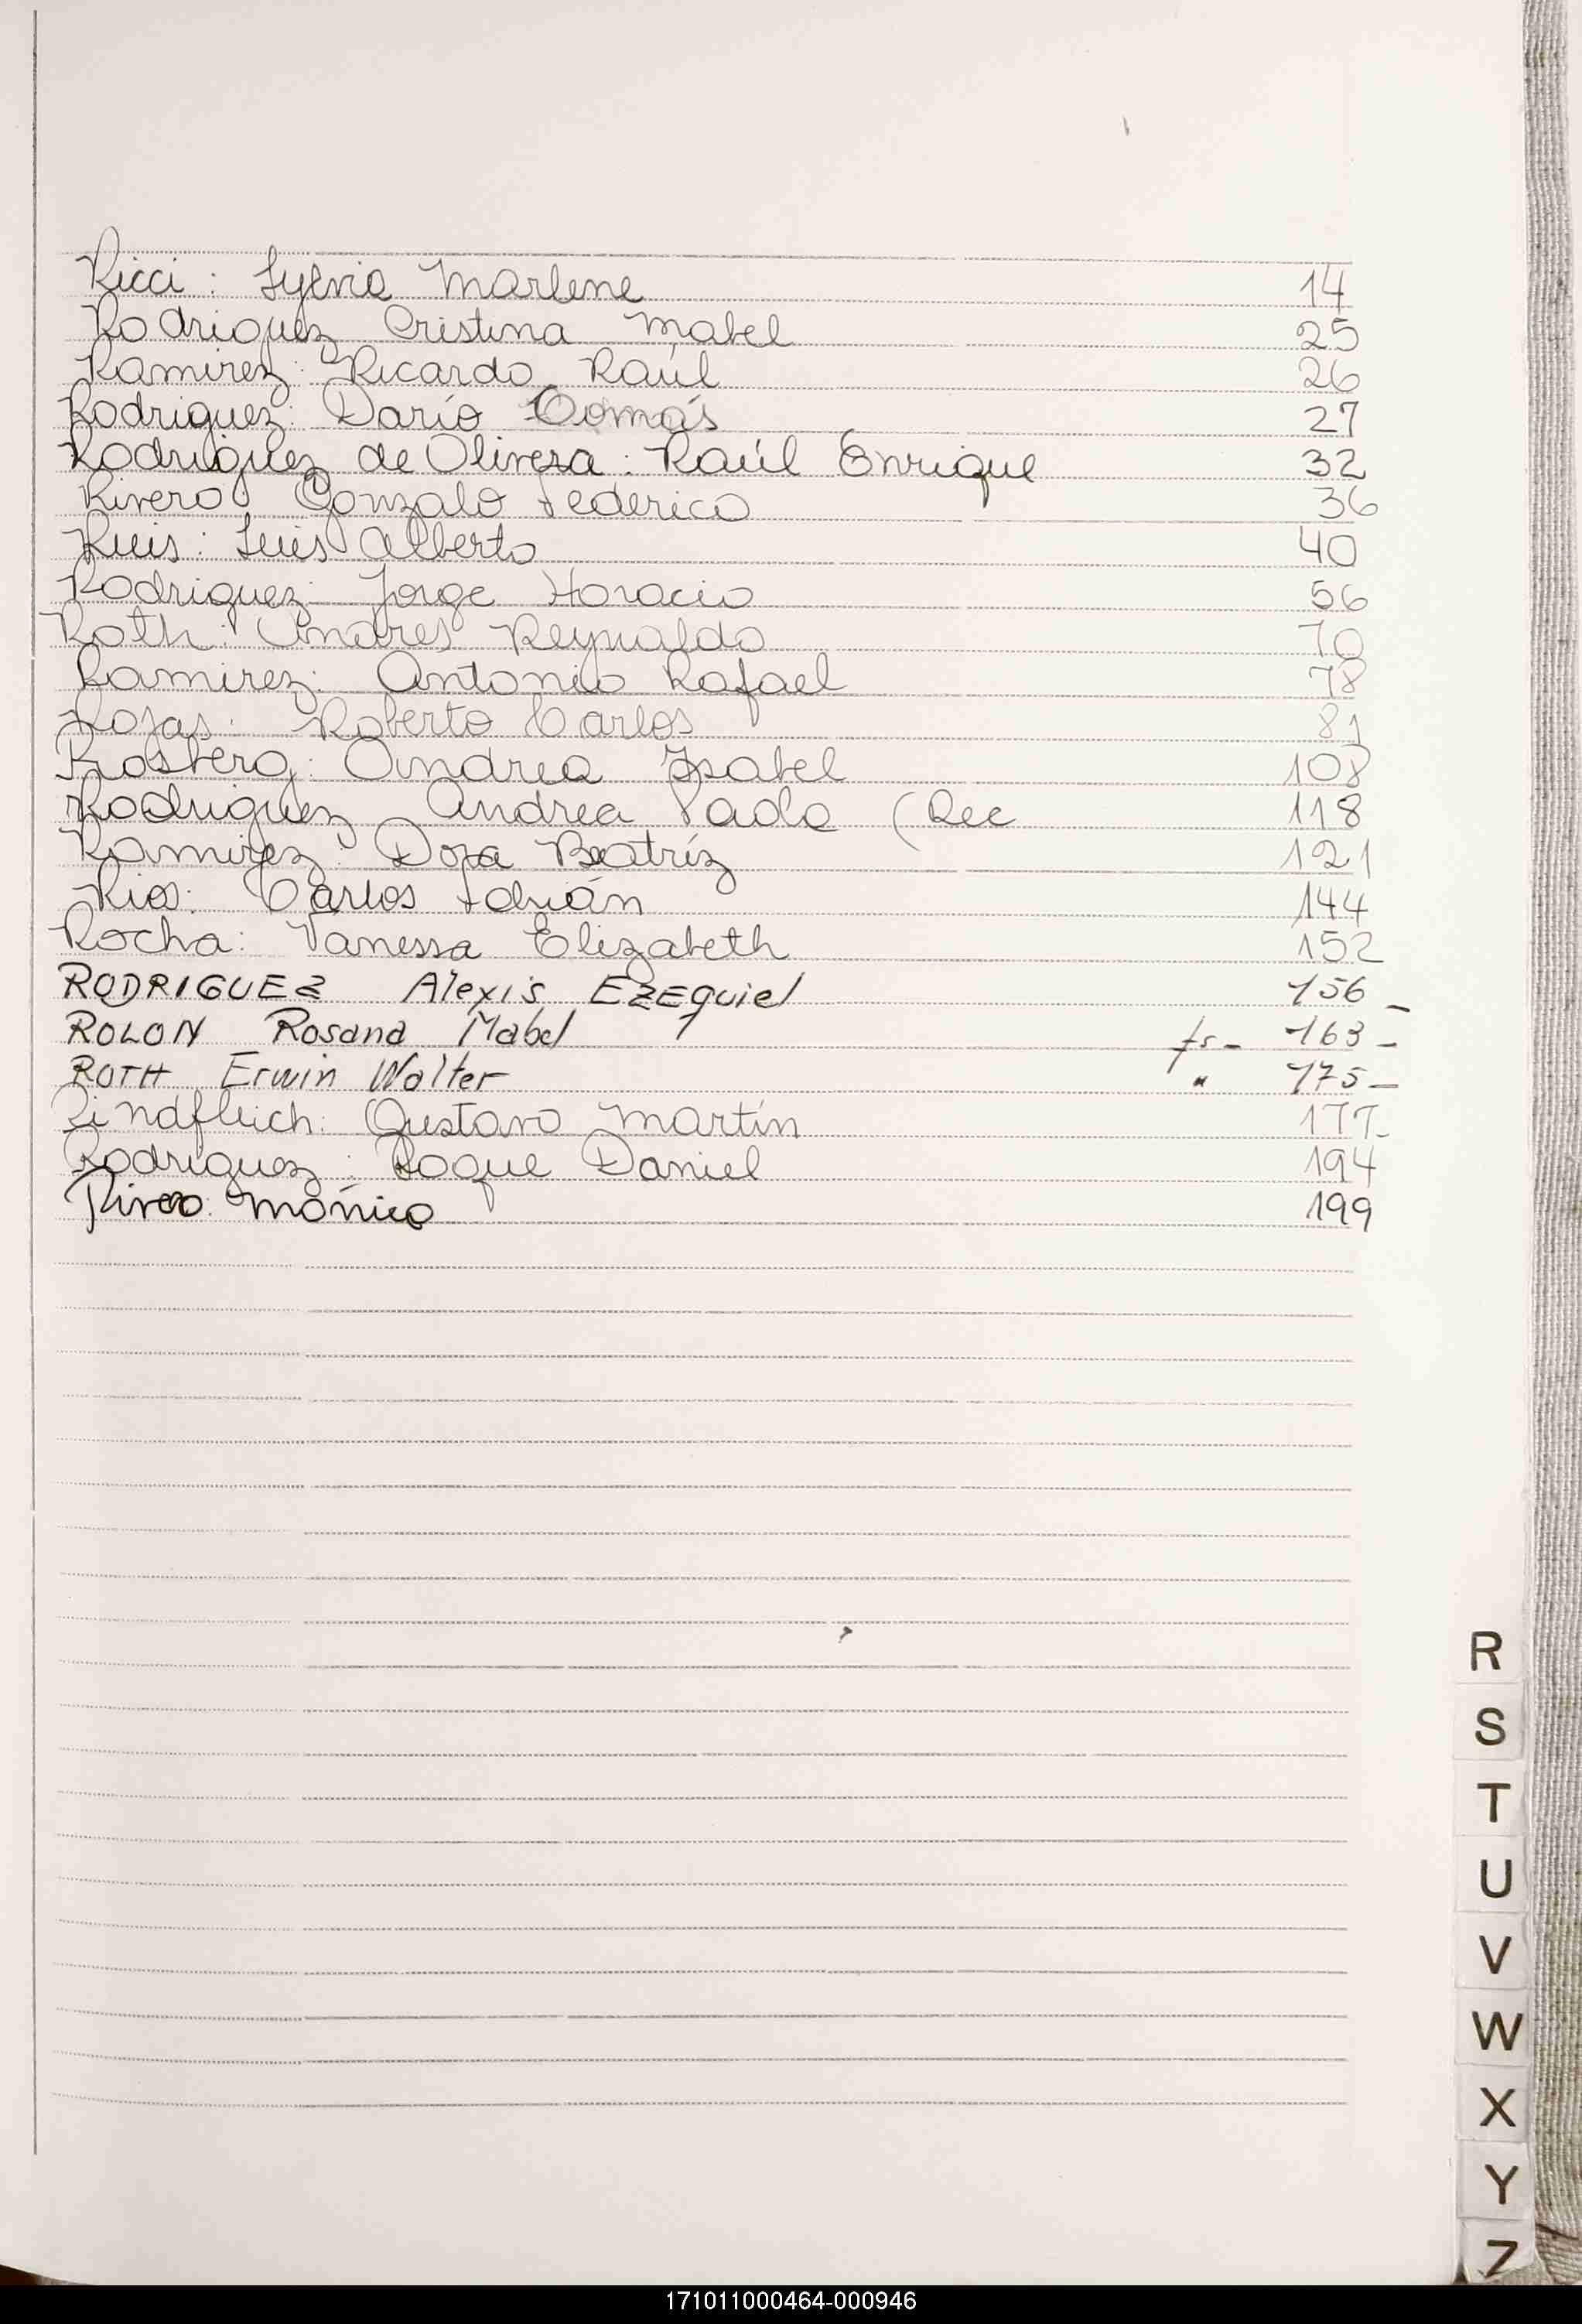 Ricci: Sylvia Marlene 14
Rodriguez Cristina Mabel 25
Ramirez: Ricardo Raúl 26
Rodriguez: Darío Tomás 27
Rodriguez de Olivera: Raúl Enrique 32
Rivero Gonzalo Federico 36
Ruis: Luis Alberto 40
Rodriguez: Jorge Horacio 56
Roth: Andres Reynaldo 70
Ramirez: Antonio Rafael 78
Rojas: Roberto Carlos 81
Rosberg: Andrea Isabel 108
Rodriguez Andrea Paola (Rec 118
Ramirez: Dora Beatríz 121
Rios: Carlos Fabián 144
Rocha: Vanessa Elizabeth 152
RODRIGUEZ Alexis EZEquiel 156 -
ROLON Rosana Mabel fs - 163 -
ROTH Erwin Walter " 175 -
Rindfleich: Gustavo Martín 177-
Rodriguez: Roque Daniel 194
Rivero Mónica 199
R
S
T
U
V
W
X
Y
Z
171011000464-000946